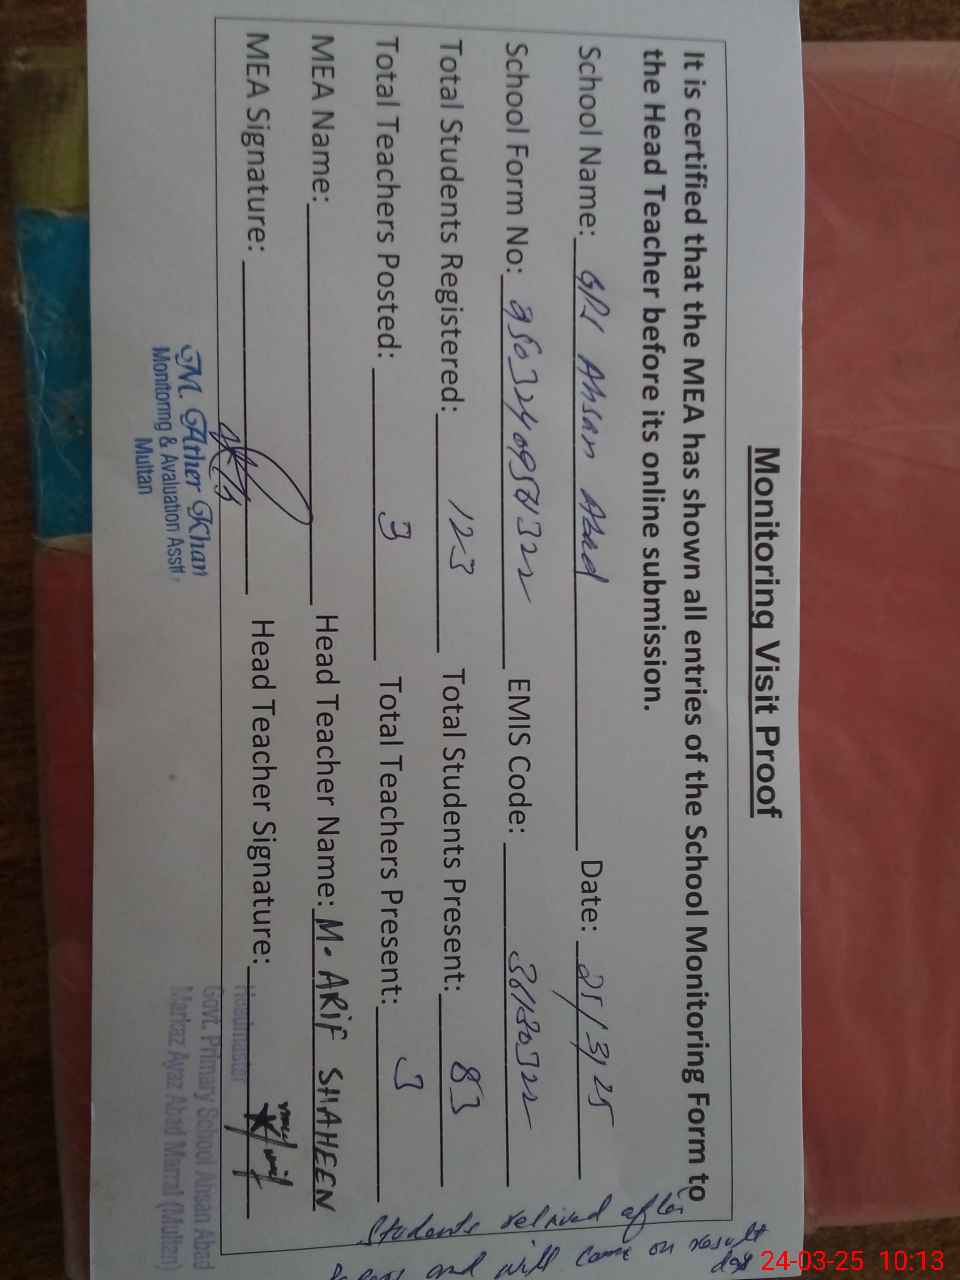 Monitoring Visit Proof
It is certified that the MEA has shown all entries of the School Monitoring Form to
the Head Teacher before its online submission.
School Name: GPS Ahsan Abad Date: 25/3/25
School Form No: EMIS Code: 36130322
Total Students Registered: 123 Total Students Present: 83
Total Teachers Posted: 3 Total Teachers Present: 3
MEA Name: Head Teacher Name: M. ARIF SHAHEEN
MEA Signature: Head Teacher Signature:
M. Ather Khan
Monitoring & Avaluation Asstt:
Multan
Headmaster
Govt. Primary School Ahsan Abad
Markaz Ayaz Abad Marral (Multan)
Students relived after
and will come on result
day
24-03-25 10:13